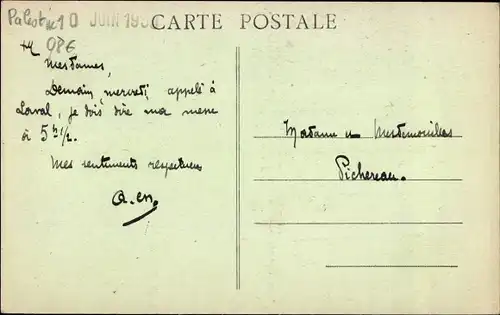 Palestine
10 JUIN 19
CARTE POSTALE
Mesdames,
Demain, mercredi, appelé à
Laval, je dois dire ma messe
à 5h 1/2.
Mes sentiments respectueux
Madame & Mesdemoiselles
Pichereau.